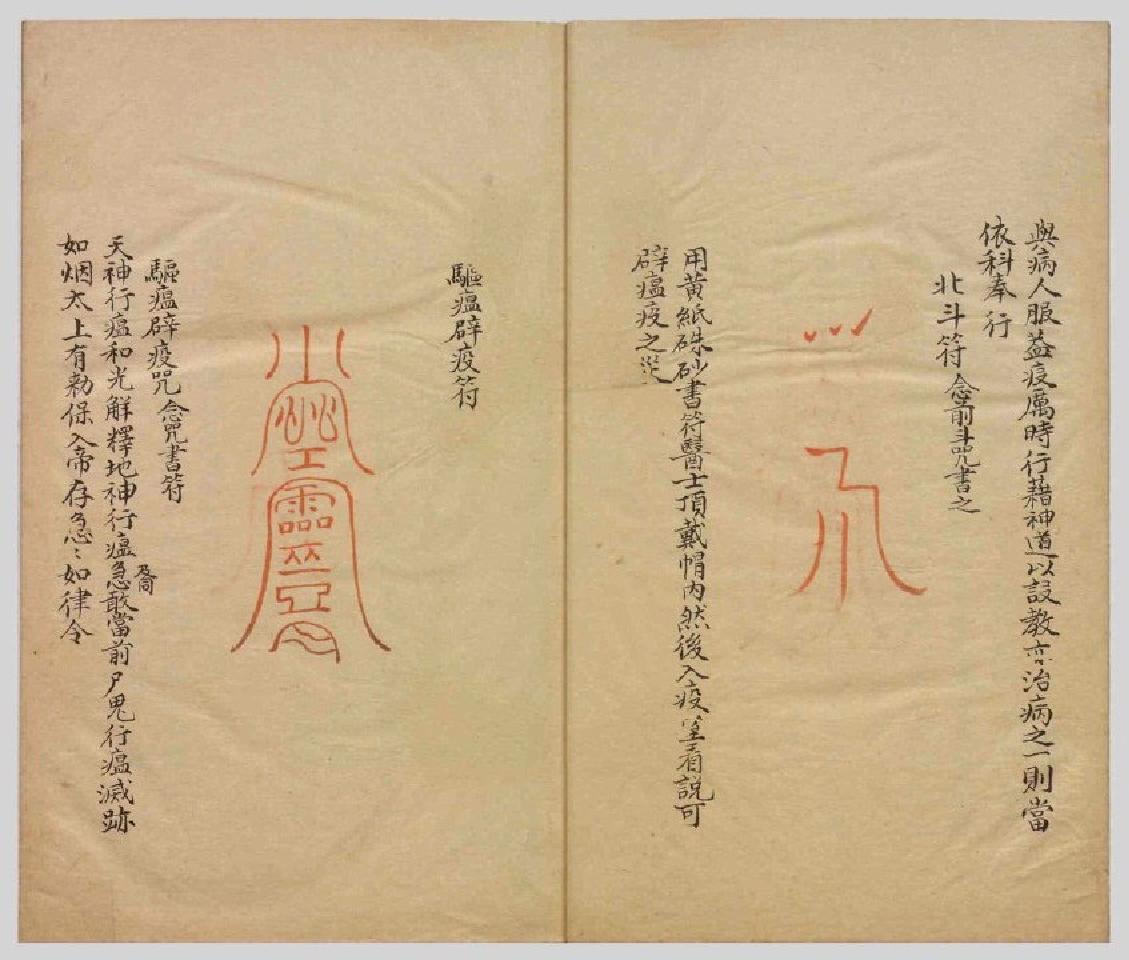 與病人服益疫厲時行藉神道以設教亦治病之一則當
依科奉行
北斗符念前斗咒書之
用黄紙硃砂書符醫士頂戴帽內然後入疫室看説可
辟瘟疫之災
驅瘟辟疫符
驅瘟辟疫咒念咒書符
天神行瘟和光解釋地神行瘟急敢當前尸鬼行瘟滅跡
如烟太上有勅保入帝存急〻如律令